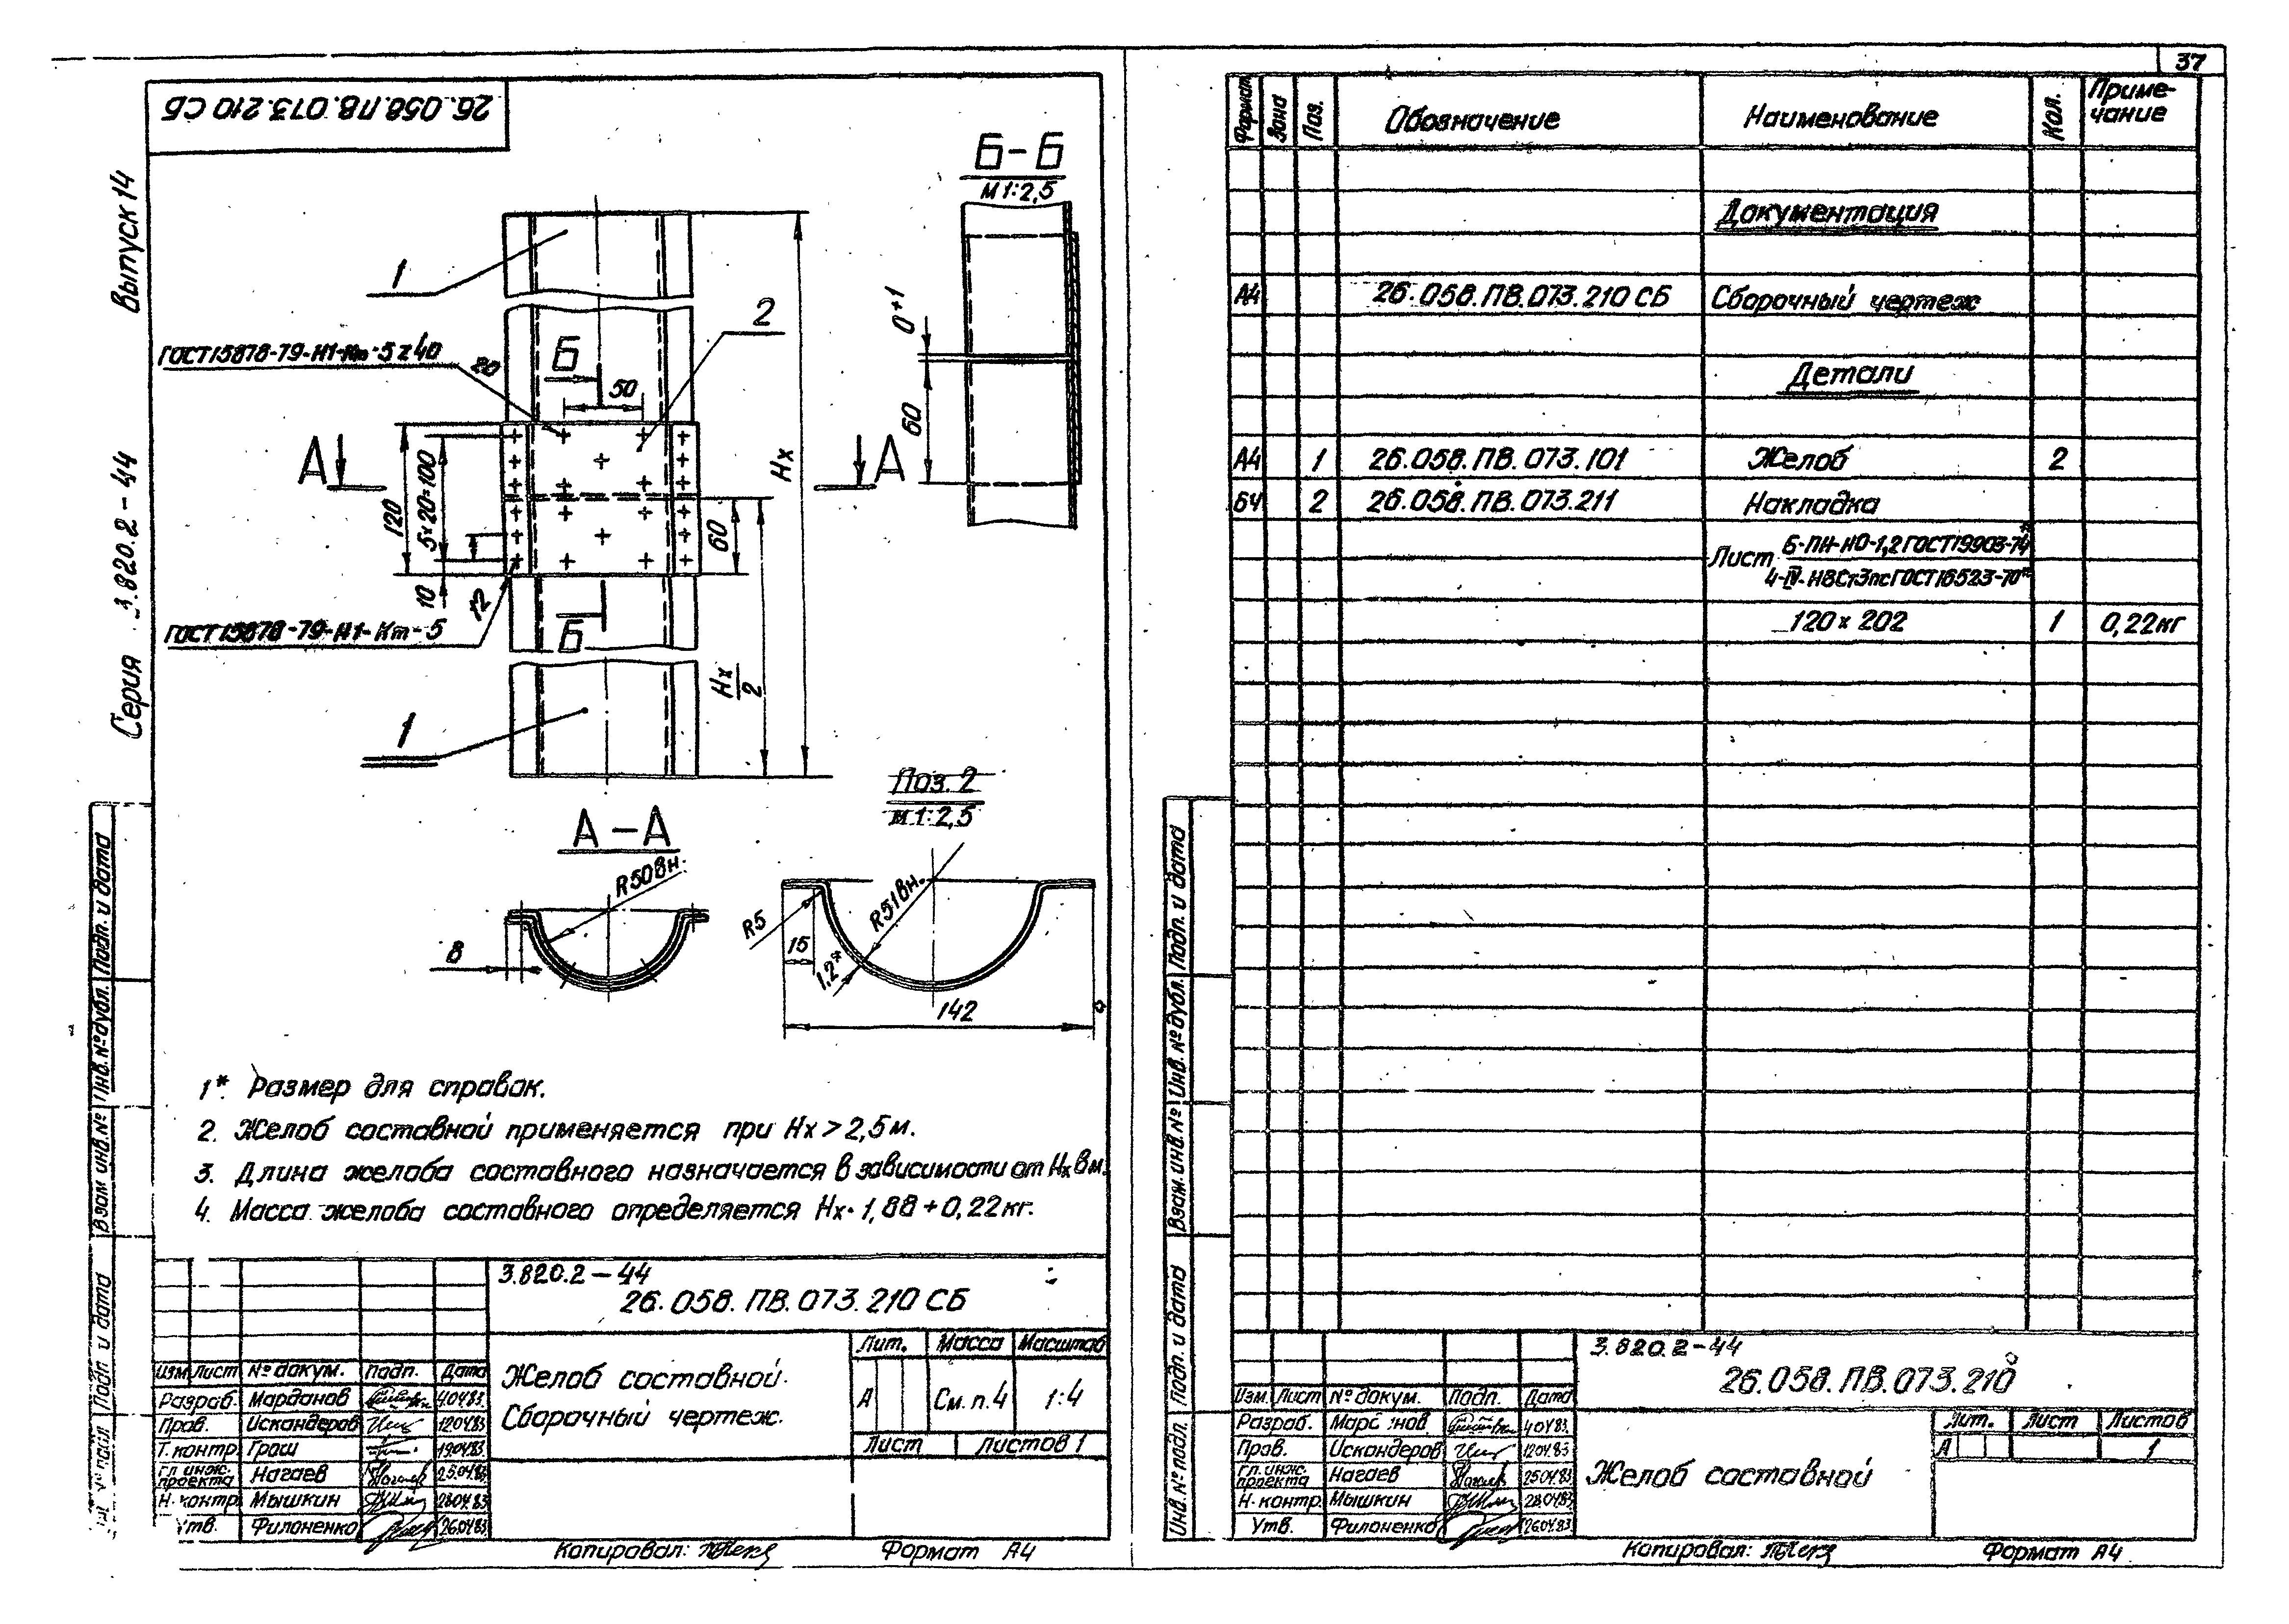 37
26.058.ПВ.073.210 СБ
Серия 3.820.2-44 Выпуск 14
Б-Б
М 1:2,5
1
2
ГОСТ15878-79-Н1-Кт-5 z 40
20
Б
50
А
А
120
5×20=100
10
12
60
Нх
Нх
2
0+1
60
ГОСТ15878-79-Н1-Кт-5
Б
1
А-А
R50вн.
8
Поз. 2
М 1:2,5
R5
R51вн.
15
1,2*
142
1*. Размер для справок.
2. Желоб составной применяется при Нх > 2,5 м.
3. Длина желоба составного назначается в зависимости от Нх в м.
4. Масса желоба составного определяется Нх·1,88+0,22 кг.
3.820.2-44
26.058.ПВ.073.210 СБ
Желоб составной.
Сборочный чертеж.
Лит. Масса Масштаб
А См.п.4 1:4
Лист Листов 1
Изм Лист № докум. Подп. Дата
Разраб. Марданов 4.04.83
Пров. Искандеров 12.04.83
Т. контр. Граш 19.04.83
Гл. инж. проекта Нагаев 25.04.83
Н. контр. Мышкин 28.04.83
Утв. Филоненко 26.04.83
Копировал: Формат А4
Подп. и дата
Инв. № дубл.
Взам инв. №
Подп и дата
Формат Зона Поз. Обозначение Наименование Кол. Приме-
чание
Документация
А4 26.058.ПВ.073.210 СБ Сборочный чертеж
Детали
А4 1 26.058.ПВ.073.101 Желоб 2
БЧ 2 26.058.ПВ.073.211 Накладка
Лист Б-ПН-НО-1,2 ГОСТ19903-74*
4-IV-НВСт3пс ГОСТ16523-70*
120×202 1 0,22кг
3.820.2-44
26.058.ПВ.073.210
Изм. Лист № докум. Подп. Дата
Разраб. 4.04.83
Пров. Искандеров 12.04.83
Гл. инж. проекта Нагаев 25.04.83
Н. контр. Мышкин 28.04.83
Утв. Филоненко 26.04.83
Желоб составной
Лит. Лист Листов
А 1
Копировал: Формат А4
Подп. и дата
Инв. № дубл.
Взам. инв. №
Подп. и дата
Инв. № подл.